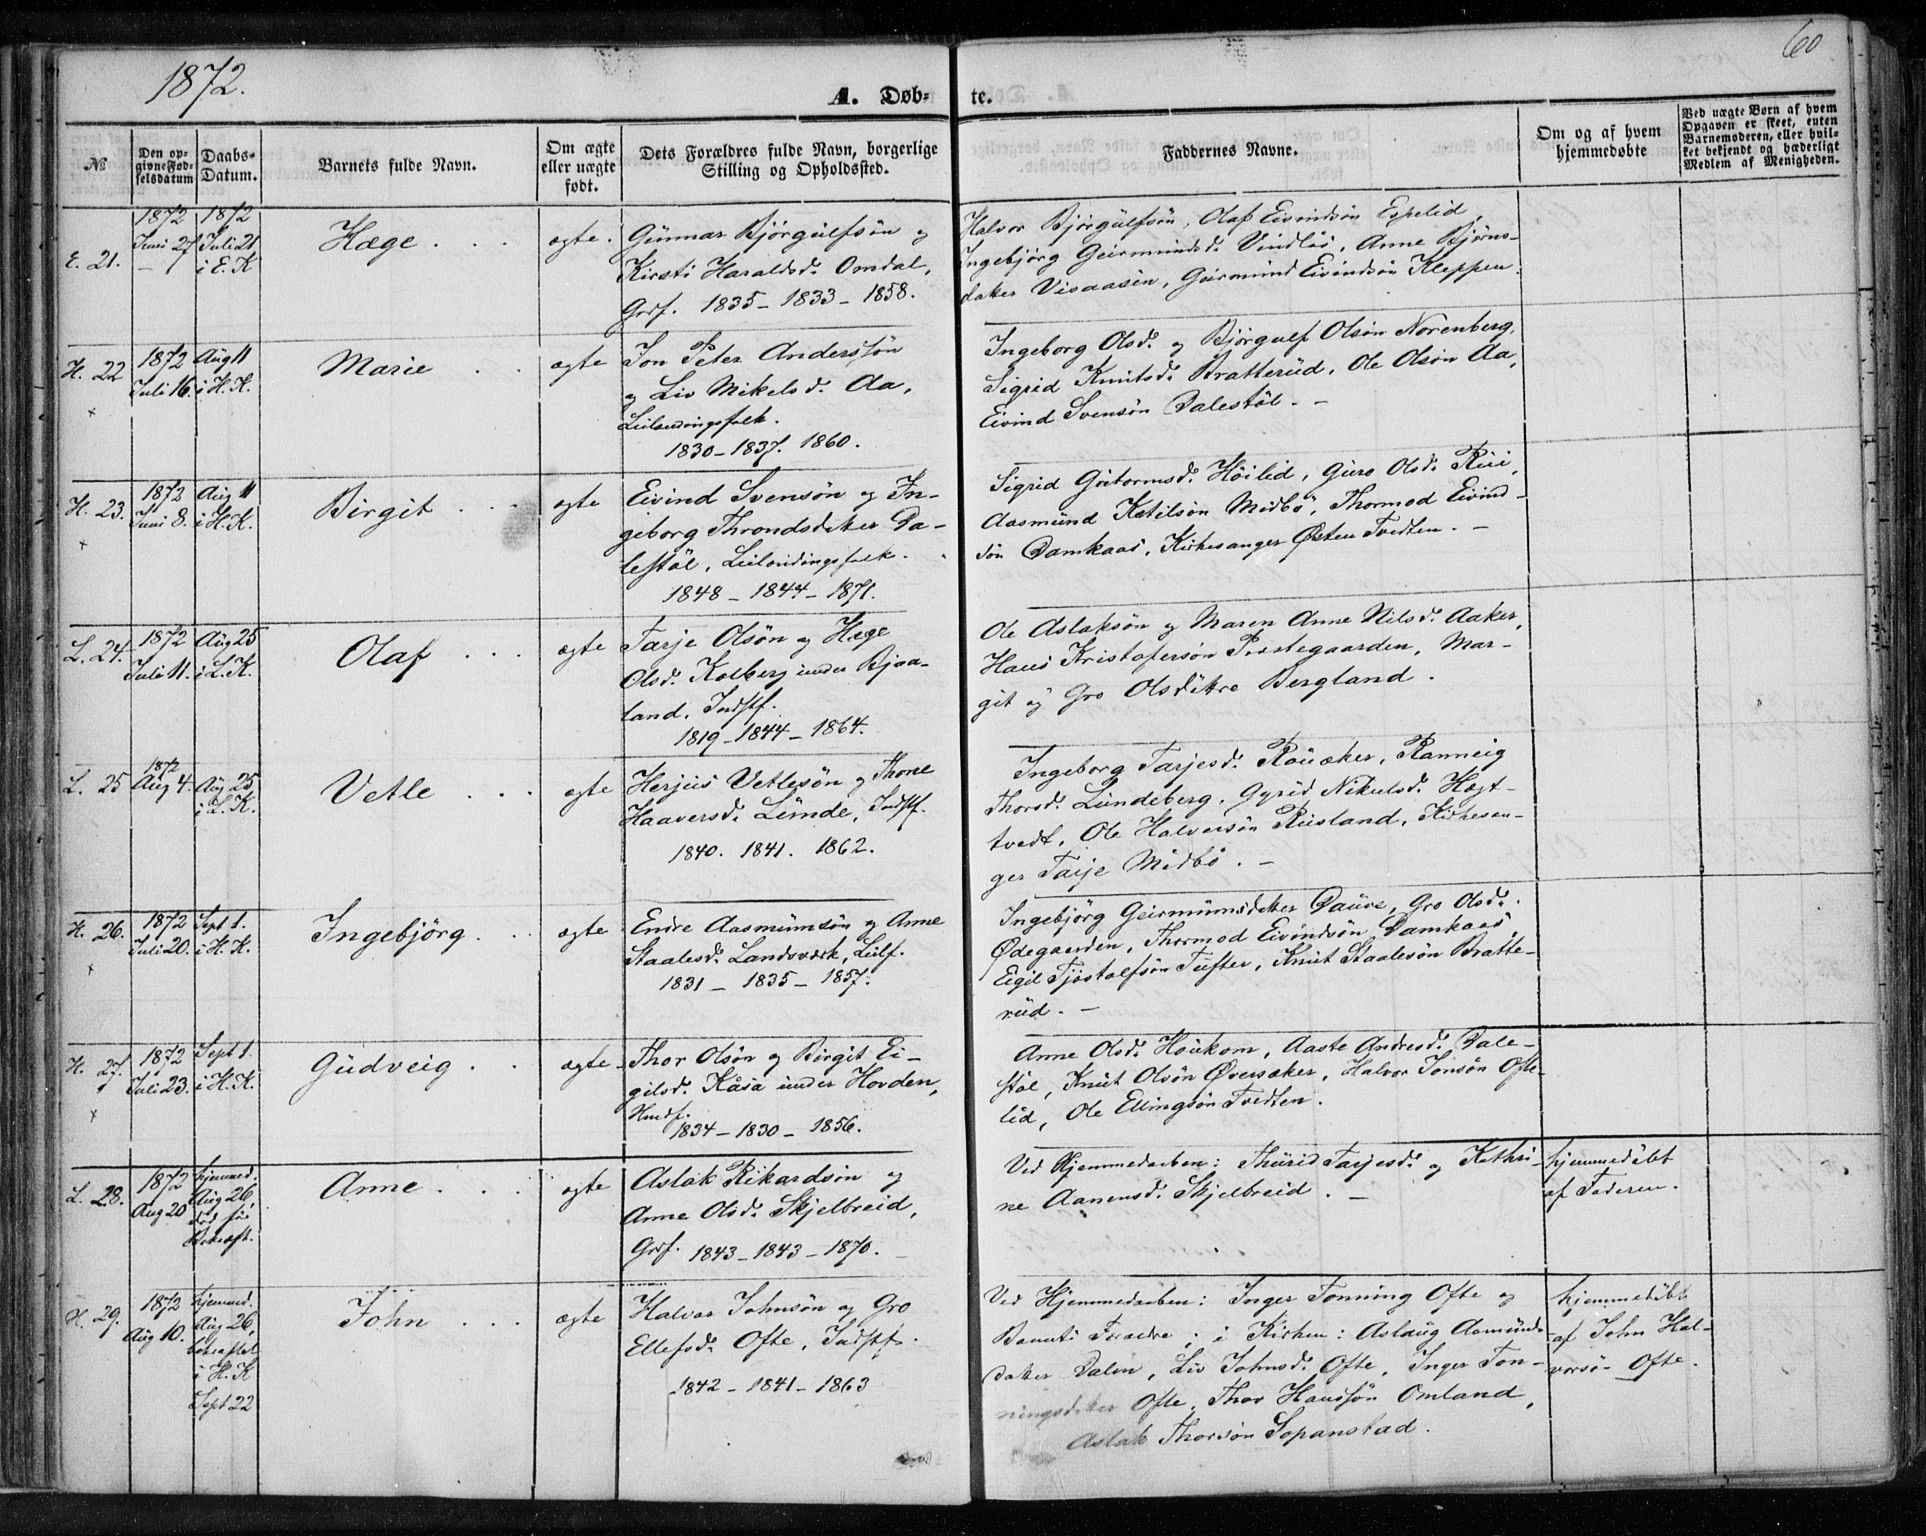 1872.
60
A. Døb-
te.
№
Den op-
givne Fød-
selsdatum
Daabs-
Datum.
Barnets fulde Navn.
Om ægte
eller uægte
født.
Dets Forældres fulde Navn, borgerlige
Stilling og Opholdssted.
Faddernes Navne.
Om og af hvem
hjemmedøbte
Ved uægte Børn af hvem
Opgaven er skeet, enten
Barnemoderen, eller hvil-
ket bekjendt og hæderligt
Medlem af Menigheden.
E. 21.
1872
Juni 27
1872
Juli 21
i E. K
Hæge
ægte.
Gunnar Bjørgulfsøn og
Kirsti Haraldsd. Omdal,
Grf. 1835 - 1833 - 1858.
Halvor Bjørgulfsøn, Olaf Eivindsøn Espelid,
Ingebjørg Geirmundsd. Vindlös, Anne Bjørns-
datter Visaasen, Geirmund Eivindsøn Kleppen.
H. 22
1872
Juli 16.
Aug 11
i H. K.
Marie
ægte
Jon Peter Anderssøn
og Liv Mikelsd. Aa,
Leilændingsfolk.
1830 - 1837. 1860.
Ingeborg Olsd. og Bjørgulf Olsøn Norenberg,
Sigrid Knutsd. Bratterud, Ole Olsøn Aa,
Eivind Svensøn Dalestöl. -
H. 23.
1872
Juni 8.
Aug 11
i H. K.
Birgit
ægte
Eivind Svensøn og In-
geborg Throndsdatter Da-
lestöl, Leilændingsfolk.
1848 - 1844 - 1871.
Sigrid Gutormsd. Höilid, Guro Olsd. Rui,
Aasmund Ketilsøn Midbö, Thormod Eivind-
søn Damkaas, Kirkesanger Østen Tvedten. -
L. 24.
1872
Juli 11.
Aug 25
i L. K.
Olaf
ægte
Tarje Olsøn og Hæge
Olsd. Kolberg under Bjaa-
land, Indstf.
1819 - 1844 - 1864.
Ole Aslaksøn og Maren Anne Nilsd. Aaker,
Hans Kristofersøn Præstegaarden, Mar-
git og Gro Olsdøtre Bergland.
L. 25
1872
Aug 4.
Aug 25
i L. K.
Vetle
ægte
Herjus Vetlesøn og Thone
Haaversd. Lunde, Indstf.
1840. 1841. 1862.
Ingeborg Tarjesd. Rouaker, Ranneig
Thorsd. Lundeberg, Gyrid Nikulsd. Hægt-
tvedt, Ole Halvorsøn Rusland, Kirkesan-
ger Tarje Midbö. -
H. 26.
1872
Juli 20.
Sept 1.
i H. K.
Ingebjörg
ægte
Endre Aasmunsøn og Anne
Staalesd. Landsværk, Leilf.
1831 - 1835 - 1857.
Ingebjörg Geirmunsdatter Daure, Gro Olsd.
Ødegaarden, Thormod Eivindsøn Damkaas,
Eigil Tjøstolfsøn Tufter, Knut Staalesøn Bratte-
rud. -
H. 27.
1872
Juli 23.
Sept 1.
i H. K.
Gudveig
ægte
Thor Olsøn og Birgit Ei-
gilsd. Kåsa under Hovden,
Husf.
1834 - 1830 - 1856.
Anne Olsd. Houkom, Aaste Andresd. Dale-
stöl, Knut Olsøn Øveraker, Halvor Jonsøn Ofte-
lid, Ole Ellingsøn Tvedten.
L. 28.
1872
Aug 20
hjemmed.
Aug 26,
död før
Bekræft.
Anne
ægte
Aslak Rikardsøn og
Anne Olsd. Skjelbreid,
Grf. 1843 - 1843 - 1870.
Ved Hjemmedaaben: Thurid Tarjesd. og Kathri-
ne Aanensd. Skjelbreid. -
hjemmedöbt
af Faderen.
H. 29.
1872
Aug 10.
hjemmed.
Aug 26,
bekræftet
i H. K
Sept 22
John
ægte
Halvor Johnsøn og Gro
Ellefsd. Ofte, Indstf.
1842 - 1841 - 1863
Ved Hjemmedaaben: Inger Tonning Ofte og
Barnets Forældre; i Kirken: Aslaug Asmunds-
datter Dalen, Liv Johnsd. Ofte, Inger Ton-
ningsdatter Ofte, Thor Hanssøn Omland,
Aslak Thorsøn Sopanstad.
hjemmedöbt
af John Hal-
vorsø- Ofte.